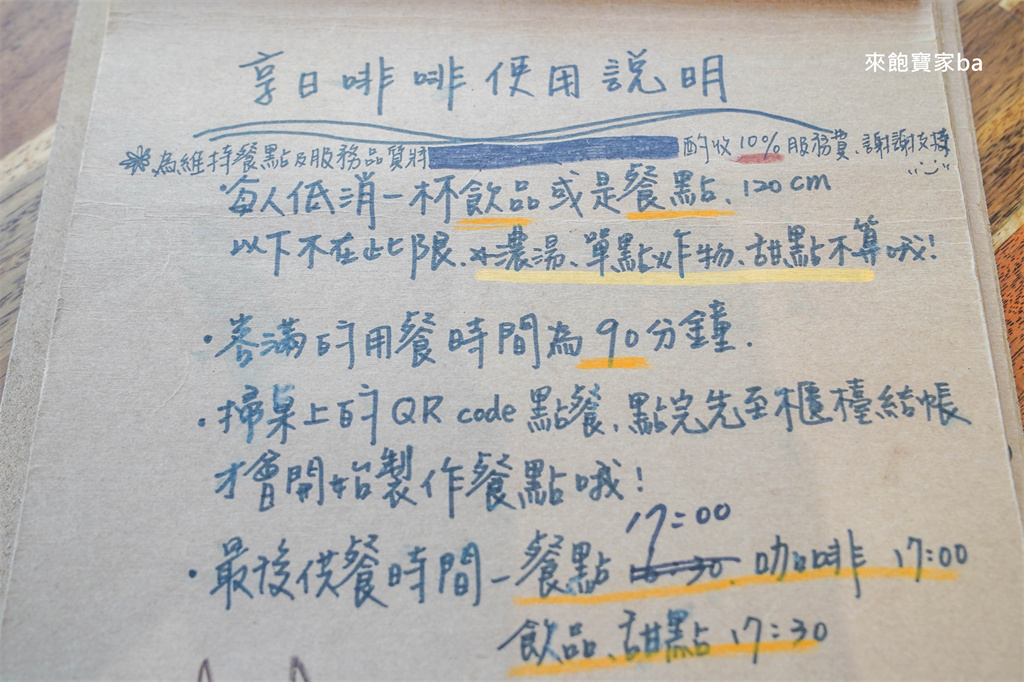 來飽寶家ba
享日啡啡使用說明
為維持餐點及服務品質將 酌收10%服務費.謝謝支持
·每人低消一杯飲品或是餐點.120cm
以下不在此限.※濃湯、單點炸物、甜點不算哦!
·客滿時用餐時間為90分鐘.
·掃桌上的QR code點餐、點完先至櫃檯結帳
才會開始製作餐點哦!
17:00
·最後供餐時間-餐點 . 咖啡 17:00
飲品、甜點 17:30